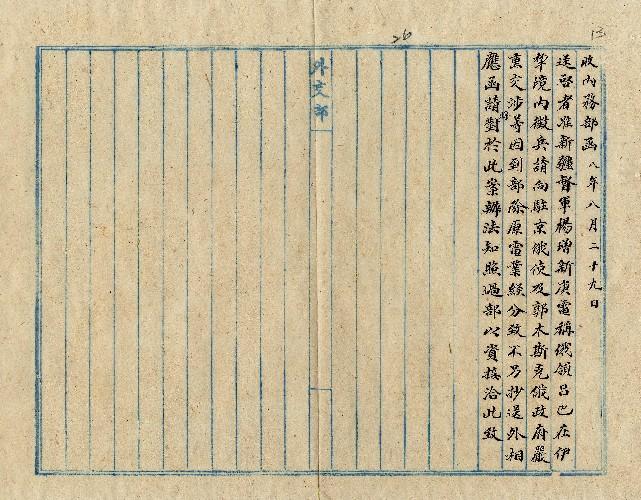 收內務部函 八年八月二十九日
逕啓者准新疆督軍楊增新庚電稱俄領呂巴在伊
犂境內徵兵請向駐京俄使及鄂木斯克俄政府嚴
重交涉等因到部除原電業經分致不另抄送外相
應函請對於此案辦法知照過部以資接洽此致
外交部
26
13